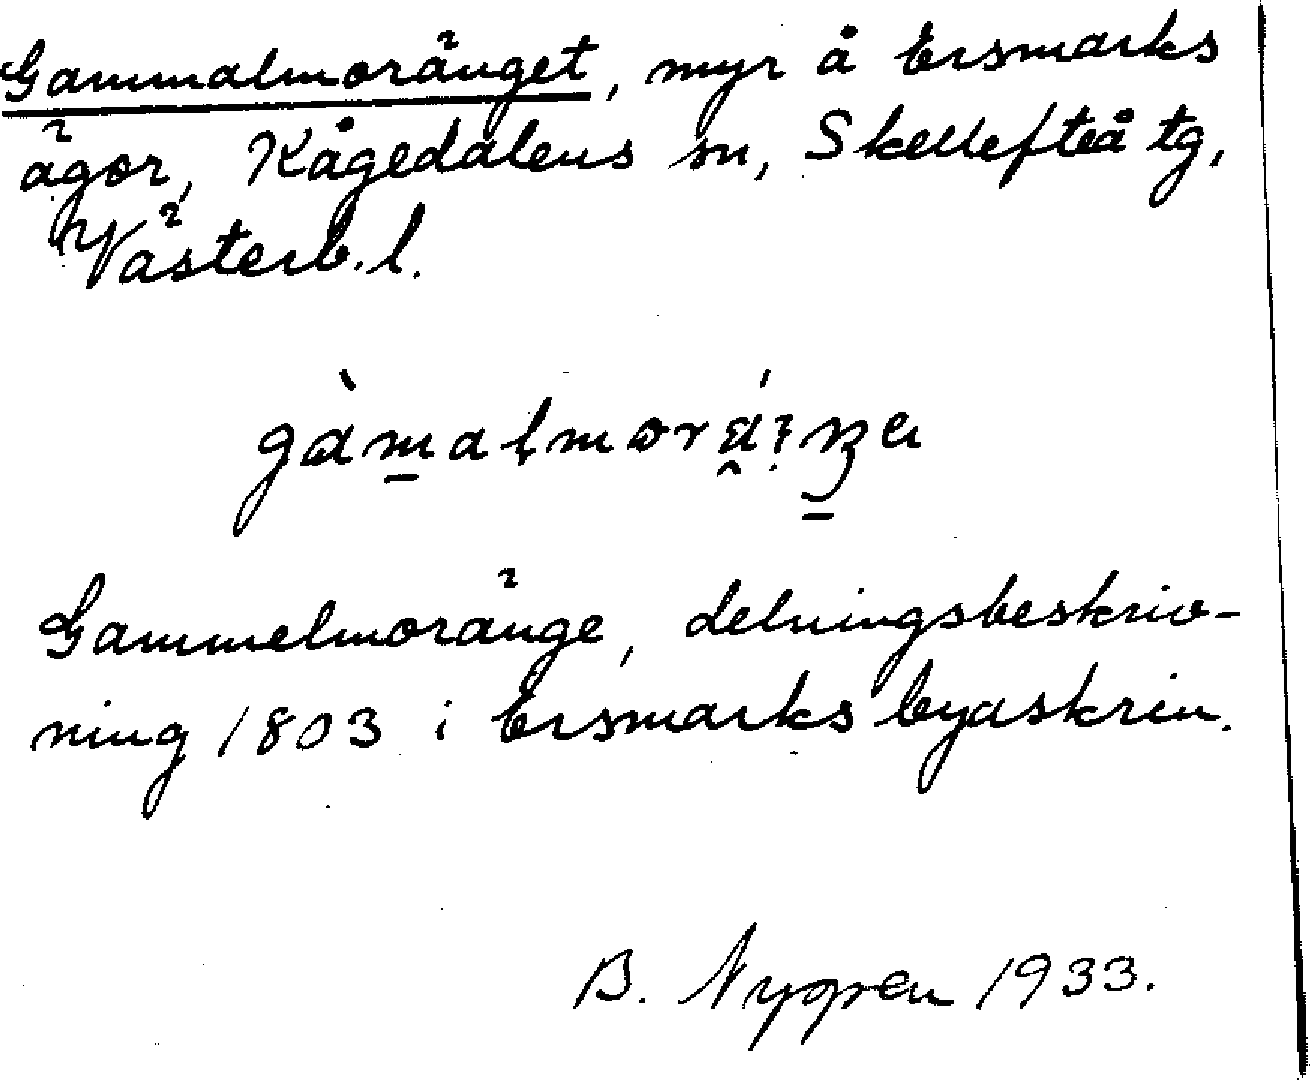 Gammalmoränget, myr å Ersmarks
ägor, Kågedalens sn, Skellefteå tg,
Västerb. l.
Gammelmoränge, delningsbeskriv-
ning 1803 i Ersmarks byaskrin.
B. Nygren 1933.